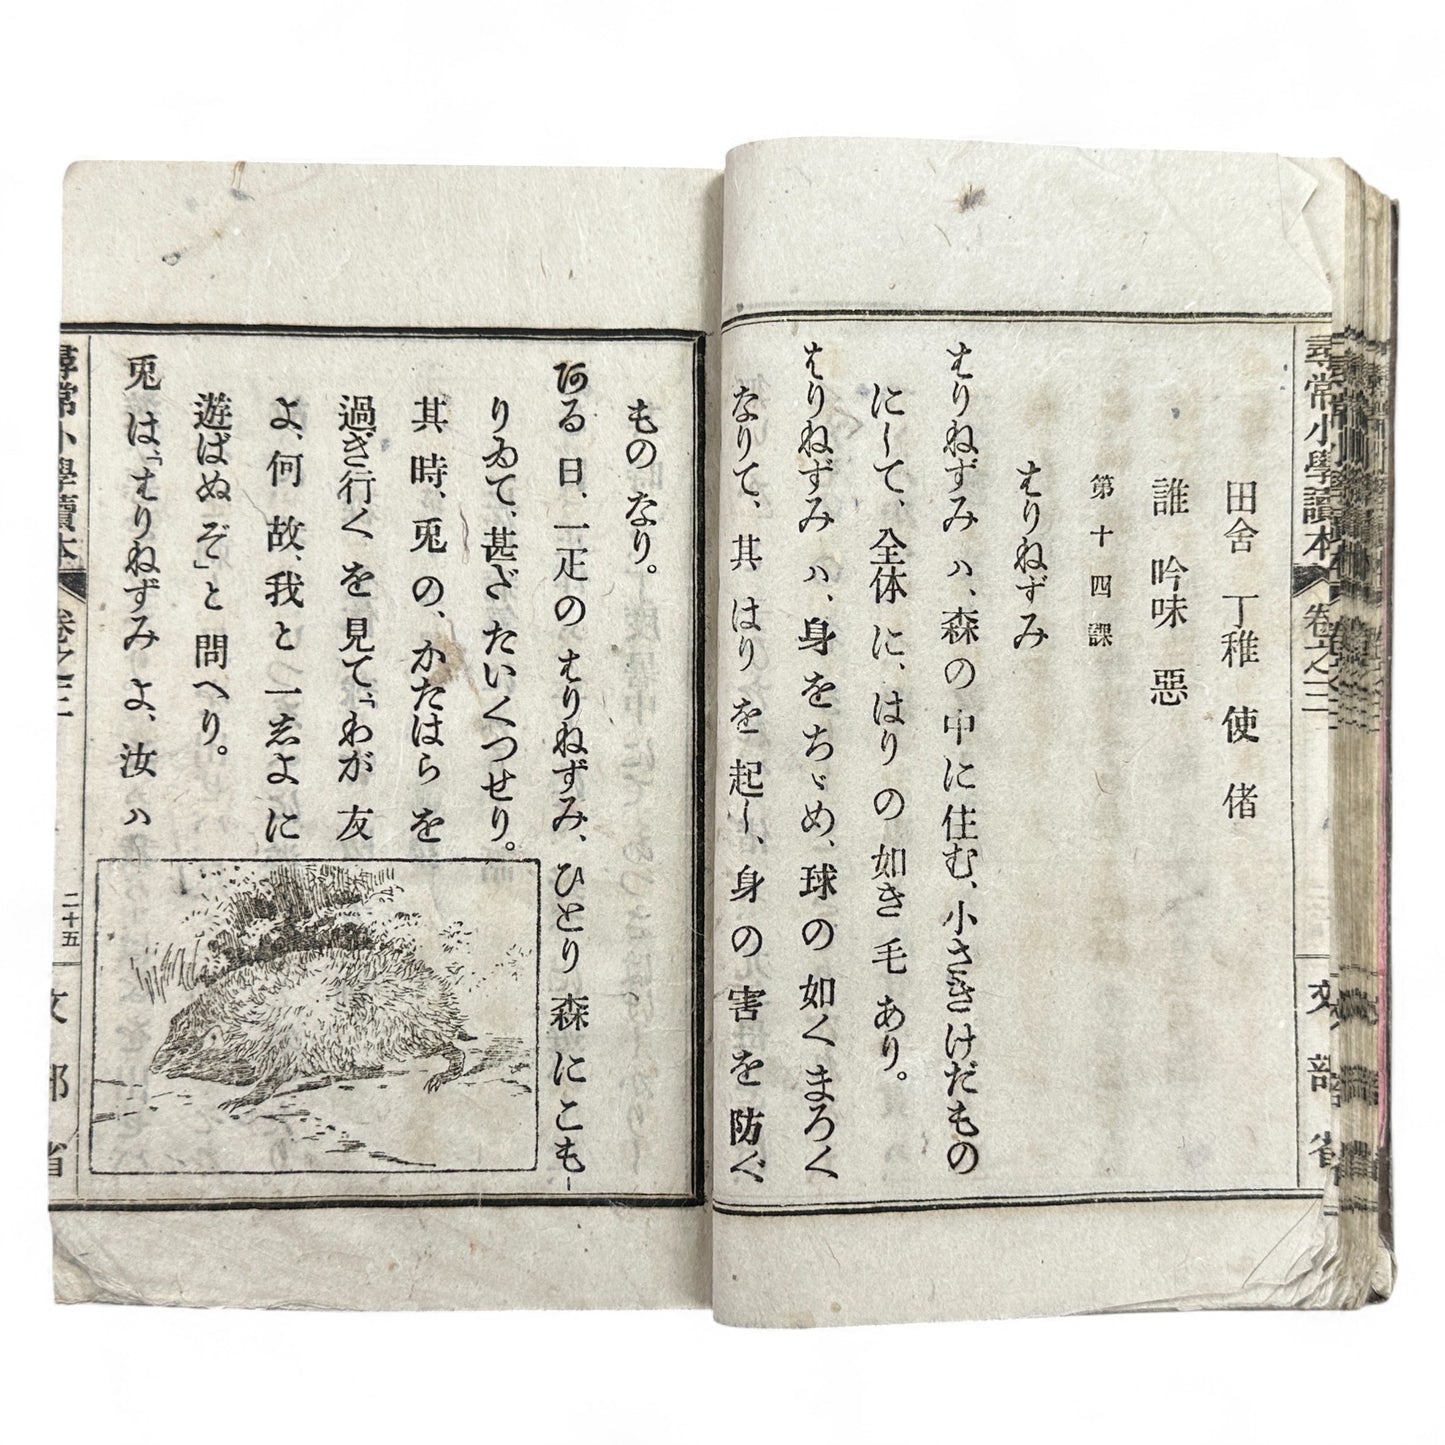 尋常小學讀本
卷之三
文部省
田舍 丁稚 使 偖
誰 吟味 惡
第十四課
はりねずみ
はりねずみハ、森の中に住む、小さきけだもの
にして、全体に、はりの如き毛あり。
はりねずみハ、身をちゞめ、球の如くまろく
なりて、其はりを起し、身の害を防ぐ
ものなり。
ある日、一疋のはりねずみ、ひとり森にこも
りゐて、甚だたいくつせり。
其時、兎の、かたはらを
過ぎ行くを見て、「わが友
よ、何故、我と一しよに
遊ばぬぞ」と問へり。
兎は、「はりねずみよ、汝ハ
尋常小學讀本
卷之三
二十五
文部省